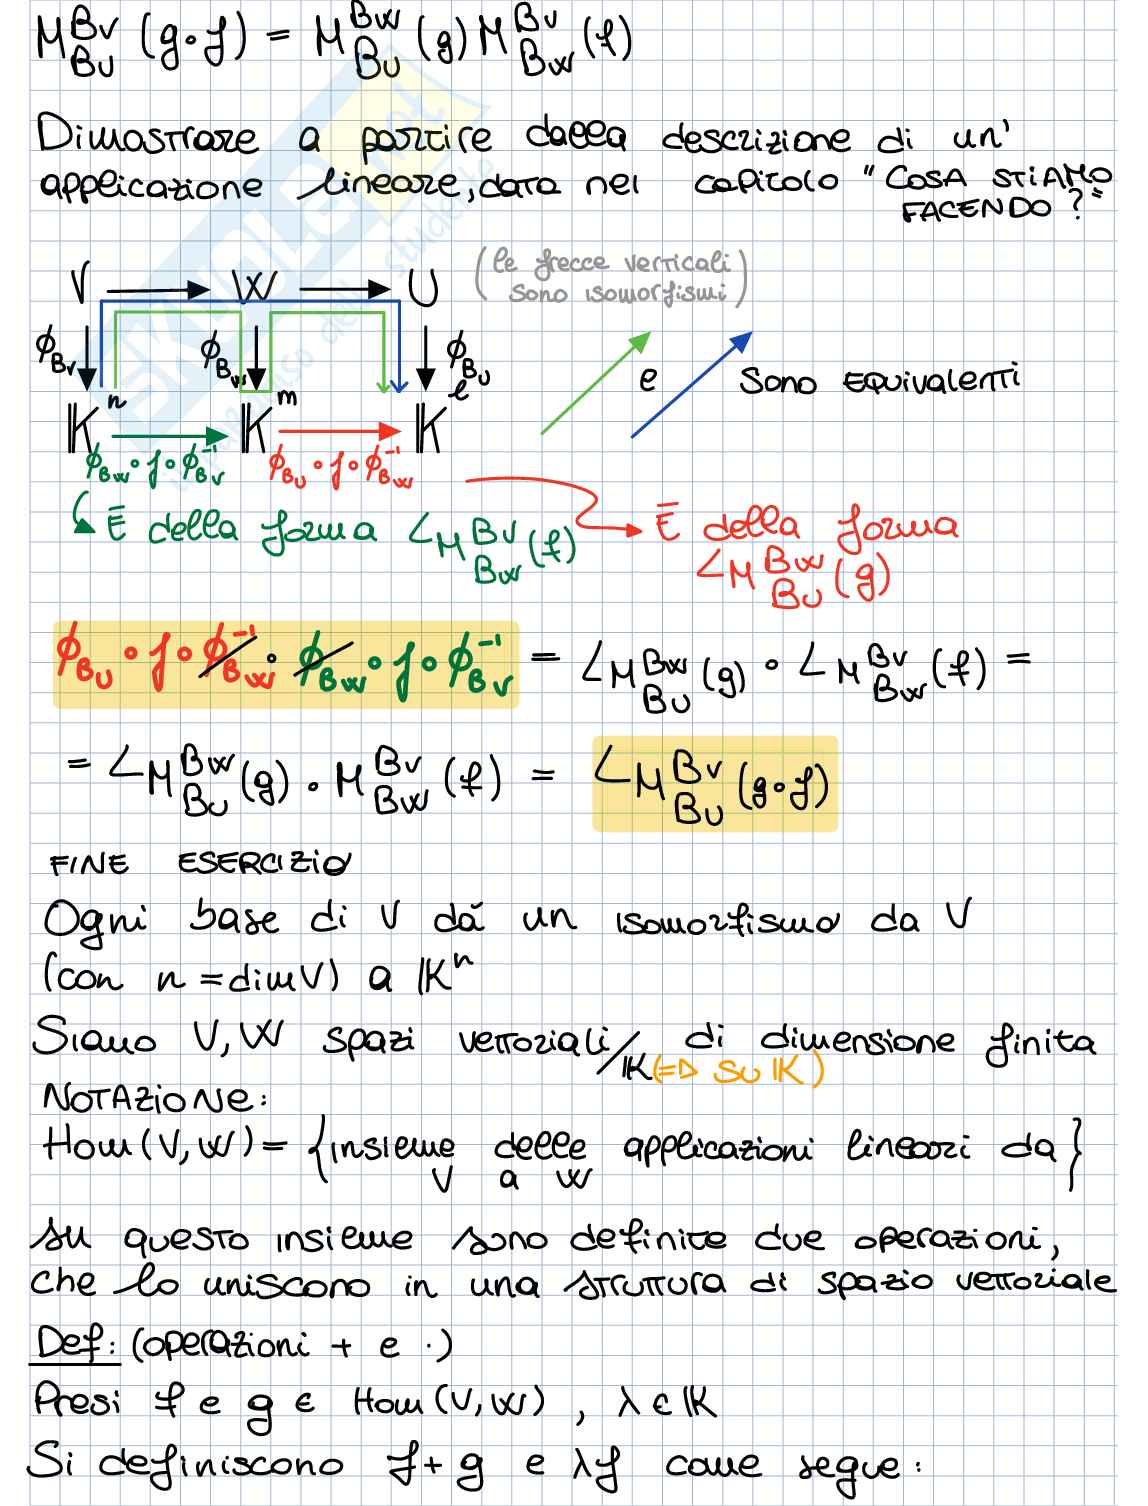 M^{Bv}_{Bu} (g∘f) = M^{Bw}_{Bu} (g) M^{Bv}_{Bw} (f)
Dimostrare a partire dalla descrizione di un'
applicazione lineare, data nel capitolo "COSA STIAMO
FACENDO?"
V → W → U
(le frecce verticali
sono isomorfismi)
ϕ_{Bv} ϕ_{Bw} ϕ_{Bu}
e sono EQUIVALENTI
𝕂^n 𝕂^m 𝕂^l
ϕ_{Bw} ∘ f ∘ ϕ^{-1}_{Bv} ϕ_{Bu} ∘ f ∘ ϕ^{-1}_{Bw}
È della forma L_{M^{Bv}_{Bw} (f)}
È della forma
L_{M^{Bw}_{Bu} (g)}
ϕ_{Bu} ∘ f ∘ ϕ^{-1}_{Bw} ∘ ϕ_{Bw} ∘ f ∘ ϕ^{-1}_{Bv} = L_{M^{Bw}_{Bu} (g)} ∘ L_{M^{Bv}_{Bw} (f)} =
= L_{M^{Bw}_{Bu} (g) · M^{Bv}_{Bw} (f)} = L_{M^{Bv}_{Bu} (g∘f)}
FINE ESERCIZIO
Ogni base di V dà un isomorfismo da V
(con n = dim V) a 𝕂^n
Siano V, W spazi vettoriali/𝕂 (=▷ SU 𝕂) di dimensione finita
NOTAZIONE:
Hom (V, W) = {insieme delle applicazioni lineari da
V a W}
su questo insieme sono definite due operazioni,
che lo uniscono in una struttura di spazio vettoriale
Def: (operazioni + e ·)
Presi f e g ∈ Hom (V, W) , λ ∈ 𝕂
Si definiscono f+g e λf come segue: